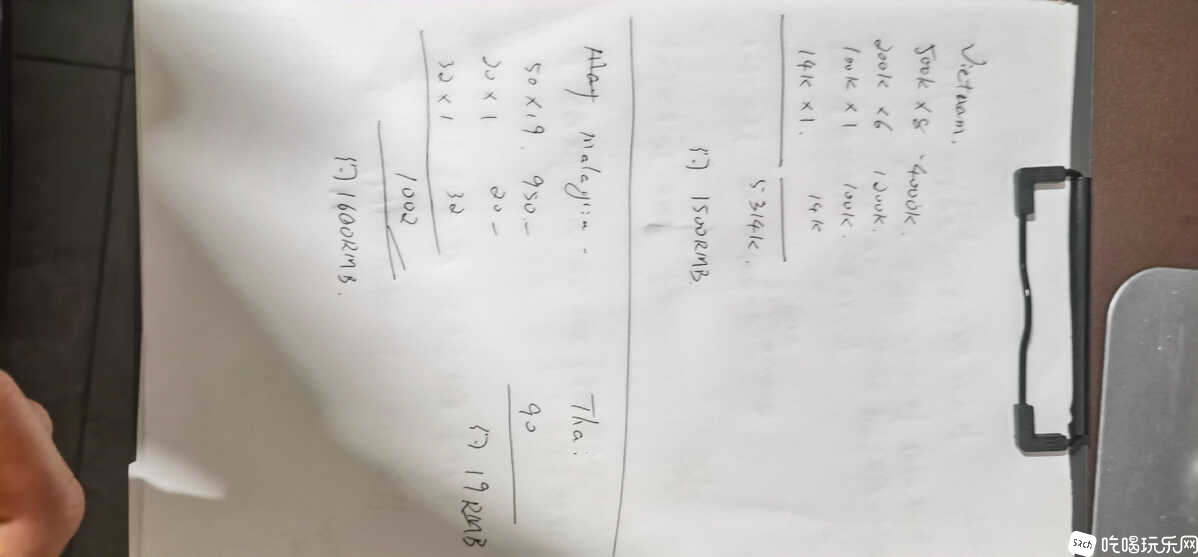 Vietnam,
500k x 8 4000k.
200k x 6 1200k.
100k x 1 100k.
14k x 1. 14k
5314k.
1500RMB.
malaysia -
50 x 19. 950.-
20 x 1 20 -
32 x 1 32
1002
1600RMB.
Thai
90
19 RMB
sach 吃喝玩乐网